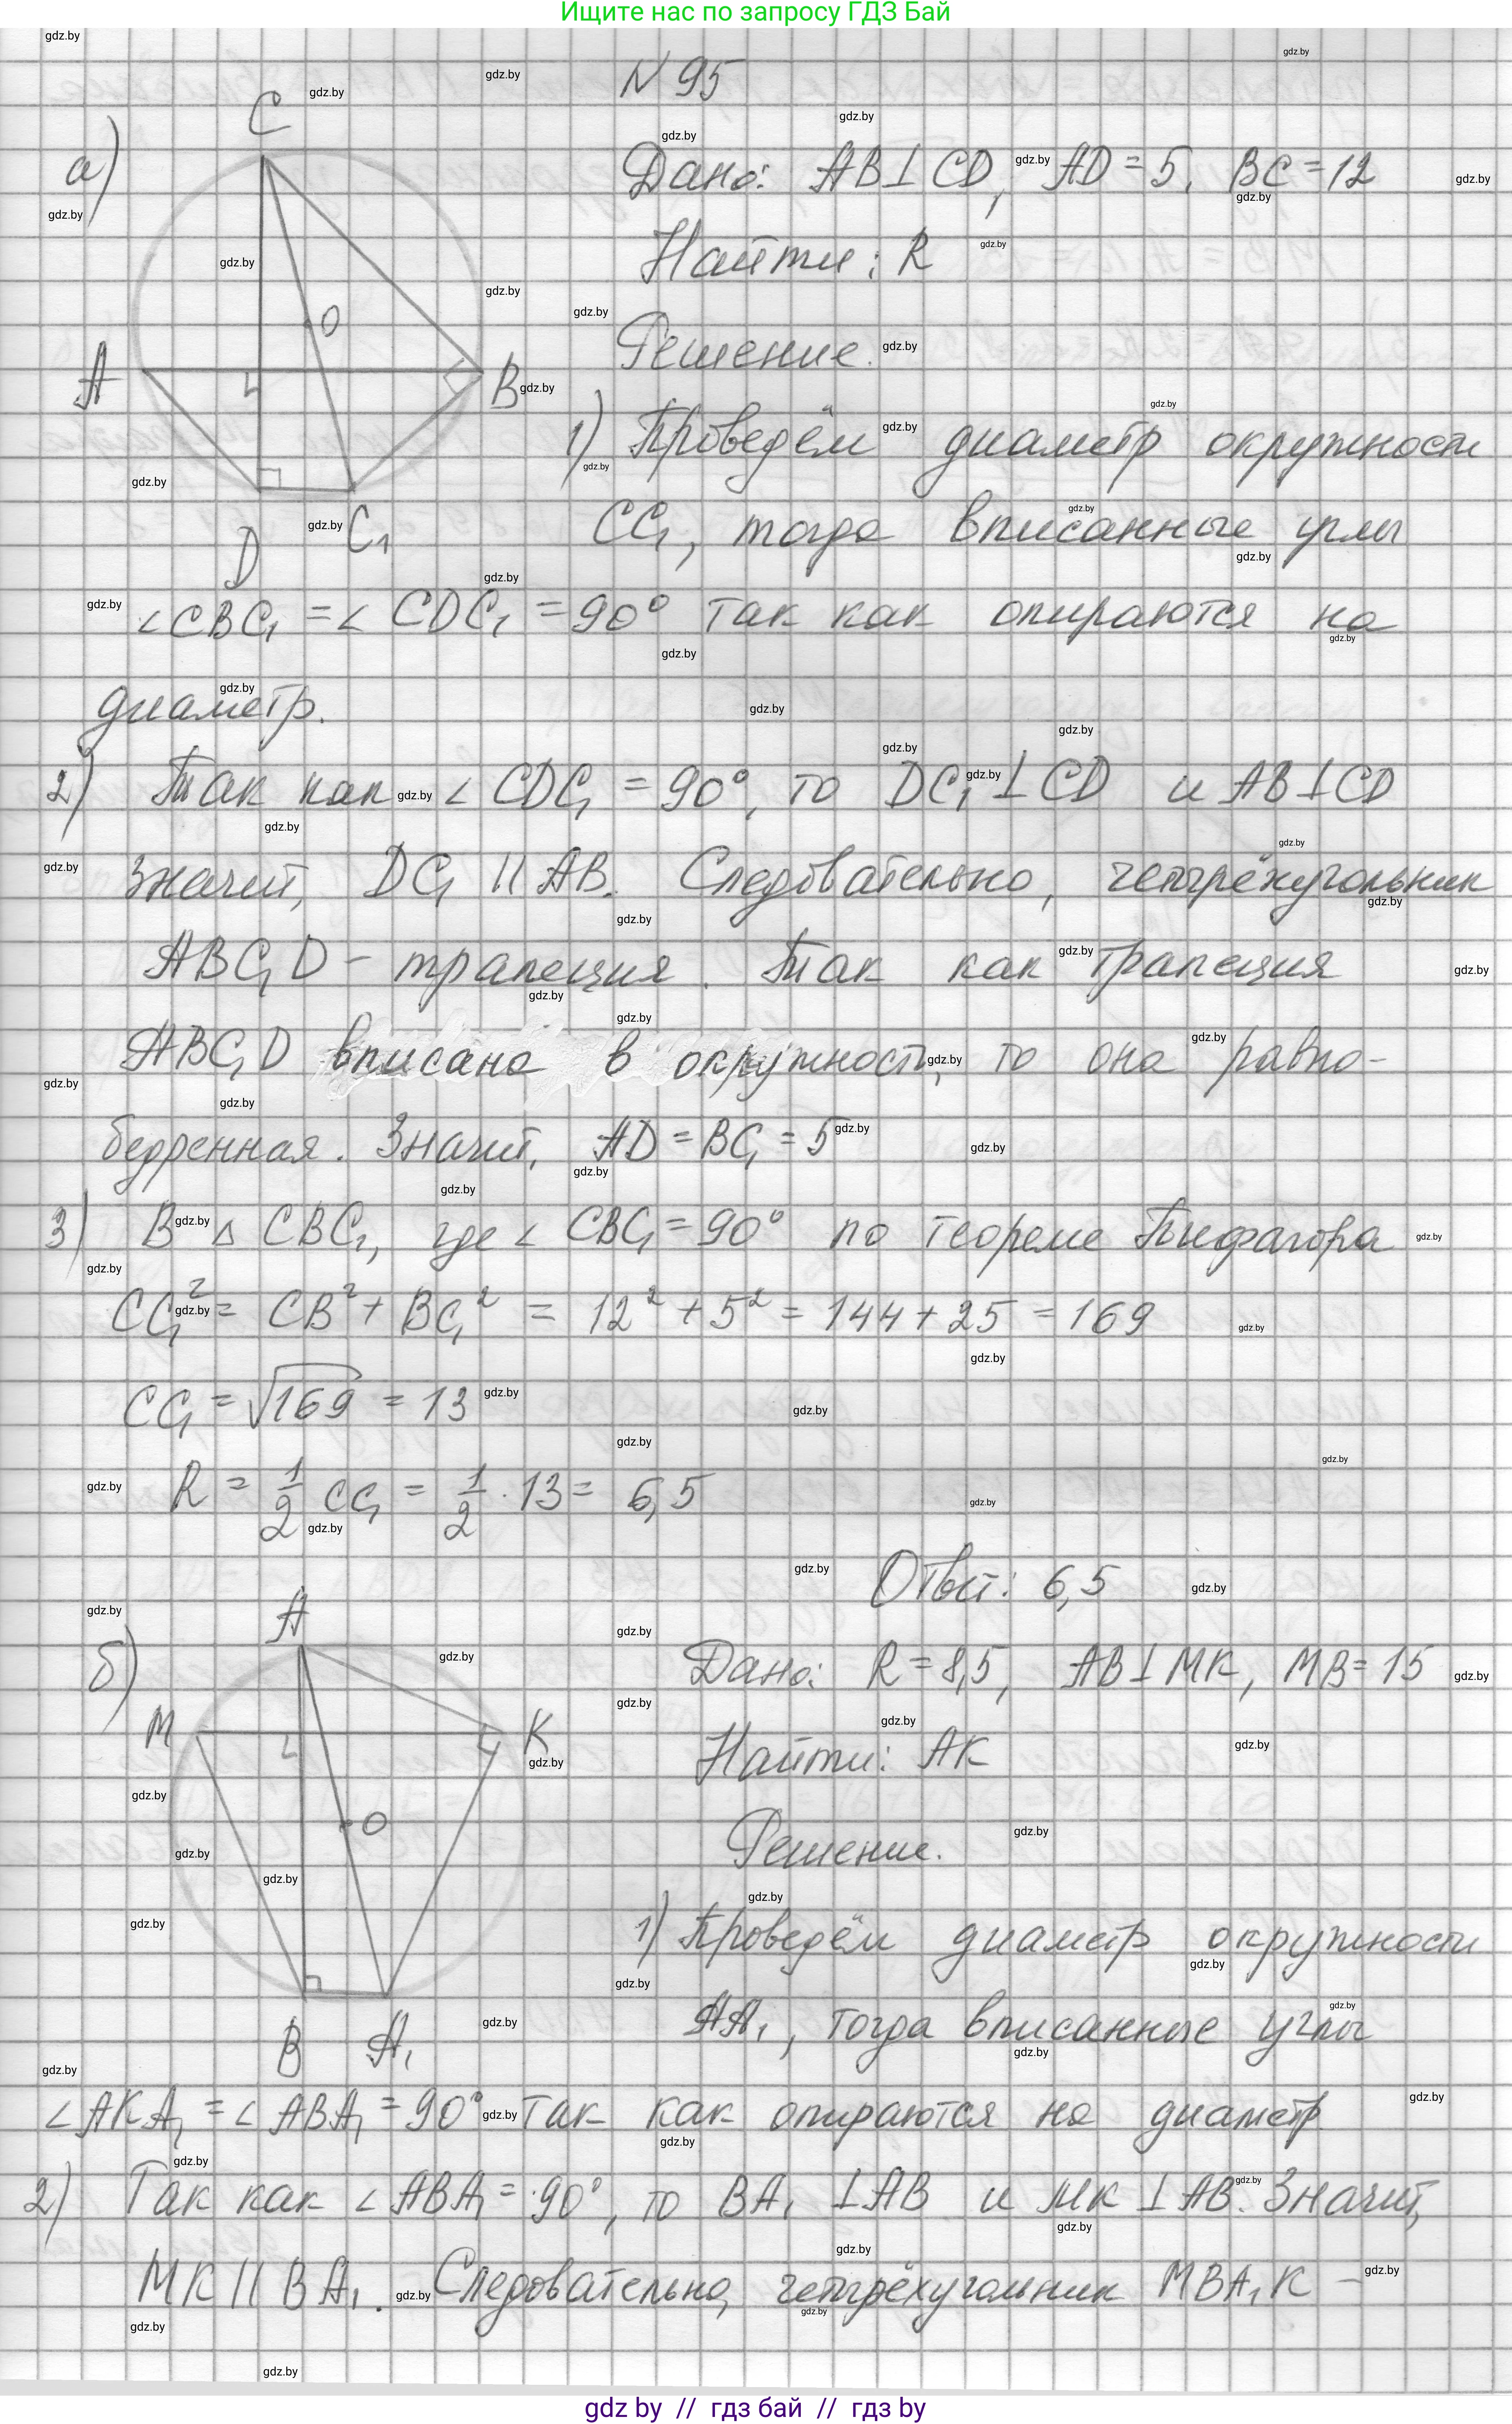 Ищите нас по запросу ГДЗ Бай
N 95
а)
C
O
A
B
D
C₁
Дано: AB⊥CD, AD=5, BC=12
Найти: R
Решение.
1) Проведём диаметр окружности
CC₁, тогда вписанные углы
∠CBC₁ = ∠CDC₁ = 90° так как опираются на
диаметр.
2) Так как ∠CDC₁ = 90°, то DC₁⊥CD и AB⊥CD
Значит, DC₁ || AB. Следовательно, четырёхугольник
ABC₁D - трапеция. Так как трапеция
ABC₁D вписана в окружность, то она равно-
бедренная. Значит, AD = BC₁ = 5
3) В △ CBC₁, где ∠CBC₁ = 90° по теореме Пифагора
CC₁² = CB² + BC₁² = 12² + 5² = 144 + 25 = 169
CC₁ = √169 = 13
R = 1/2 CC₁ = 1/2 · 13 = 6,5
Ответ: 6,5
б)
A
M
K
O
B
A₁
Дано: R = 8,5, AB⊥MK, MB = 15
Найти: AK
Решение.
1) Проведём диаметр окружности
AA₁, тогда вписанные углы
∠AKA₁ = ∠ABA₁ = 90° так как опираются на диаметр.
2) Так как ∠ABA₁ = 90°, то BA₁ ⊥AB и MK ⊥AB. Значит,
MK || BA₁. Следовательно, четырёхугольник MBA₁K –
gdz by // гдз бай // гдз by